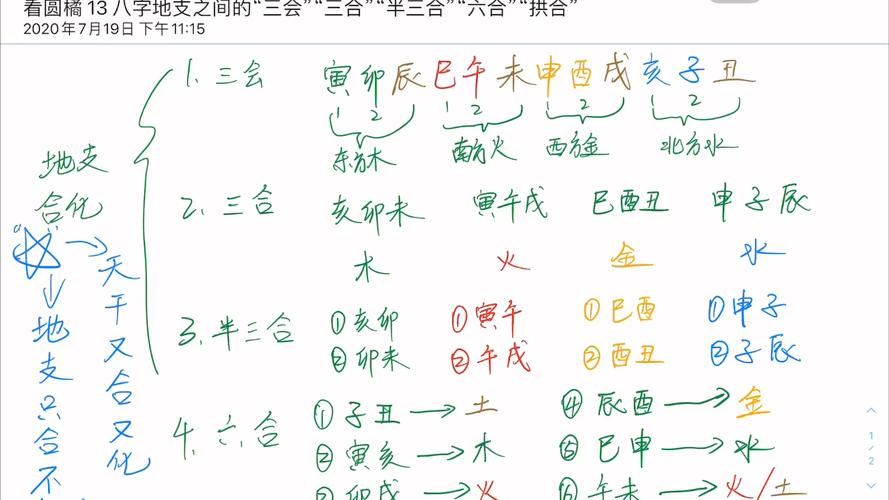 看圆橘 13 八字地支之间的“三会”“三合”“半三合”“六合”“拱合”
2020年7月19日 下午11:15
地支
合化
天干又合又化
地支只合不
1. 三会 寅卯辰 巳午未 申酉戌 亥子丑
1 2 1 2 1 2 1 2
东方木 南方火 西方金 北方水
2. 三合 亥卯未 寅午戌 巳酉丑 申子辰
木 火 金 水
3. 半三合 ①亥卯 ①寅午 ①巳酉 ①申子
②卯未 ②午戌 ②酉丑 ②子辰
4. 六合 ①子丑→土 ④辰酉→金
②寅亥→木 ⑤巳申→水
③卯戌→火 ⑥午未→火/土
1/2